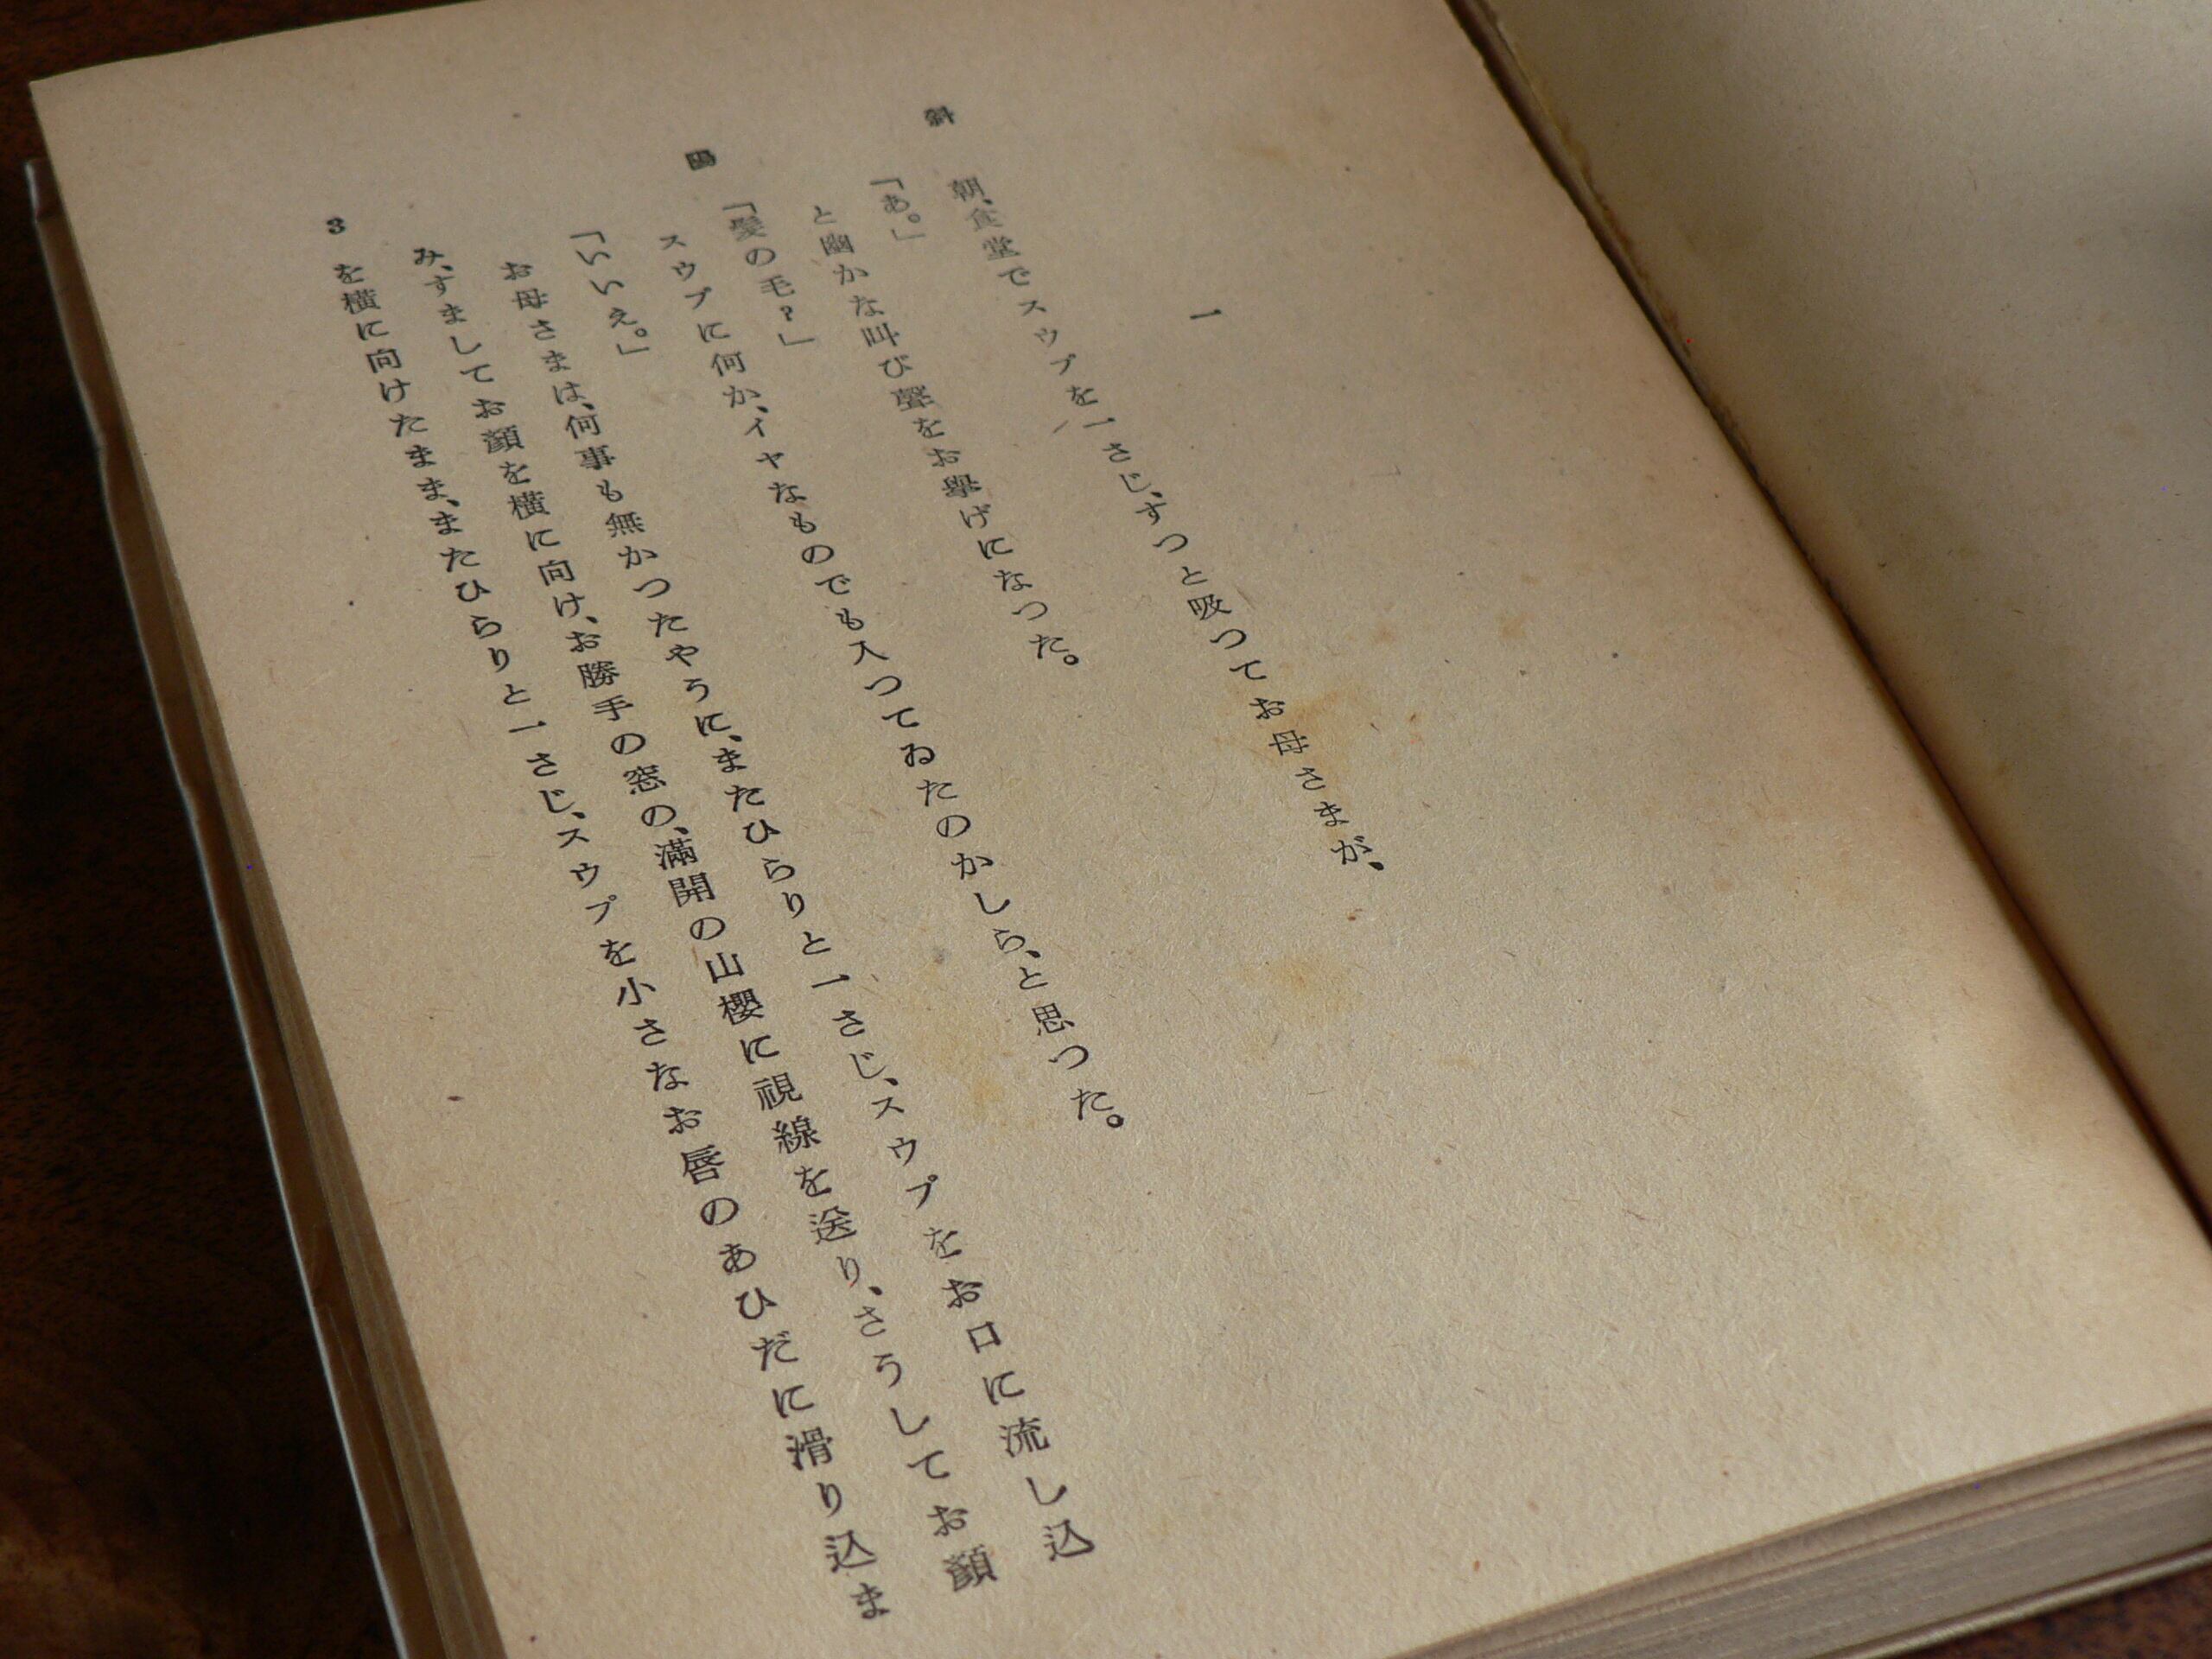 一
朝、食堂でスウプを一さじ、すつと吸つてお母さまが、
「あ。」
と幽かな叫び聲をお擧げになつた。
「髮の毛?」
スウプに何か、イヤなものでも入つてゐたのかしら、と思つた。
「いいえ。」
お母さまは、何事も無かつたやうに、またひらりと一さじ、スウプをお口に流し込
み、すましてお顏を横に向け、お勝手の窓の、滿開の山櫻に視線を送り、さうしてお顏
を横に向けたまま、またひらりと一さじ、スウプを小さなお唇のあひだに滑り込ま
斜陽
3